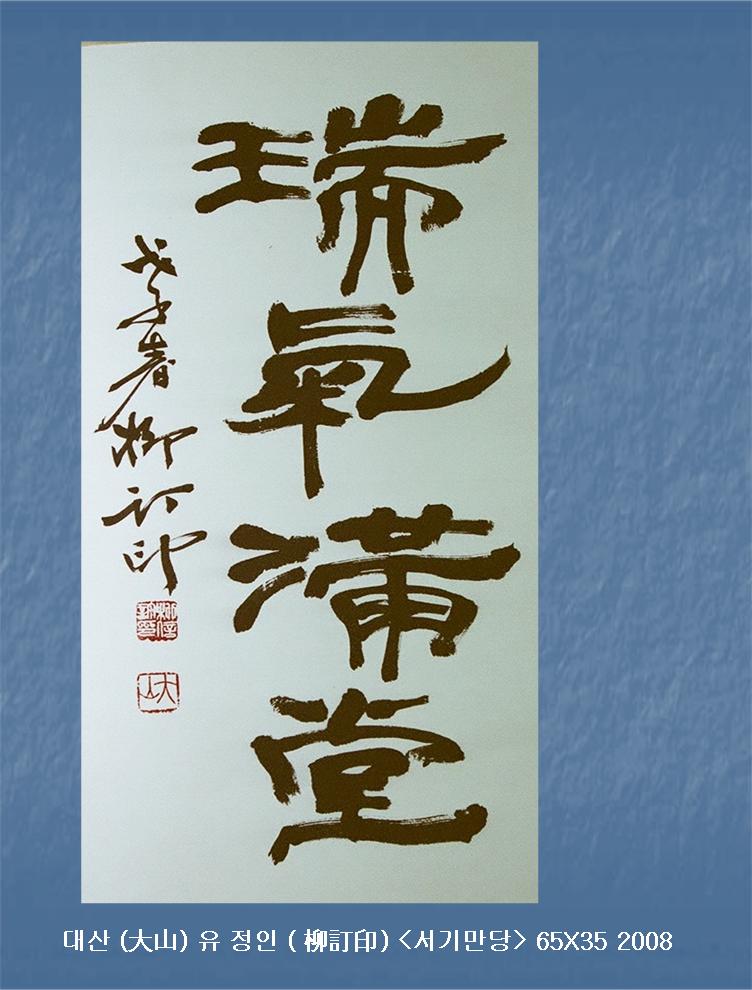 瑞氣滿堂
戊子春柳訂印
大山
대산 (大山) 유 정인 ( 柳訂印) <서기만당> 65X35 2008